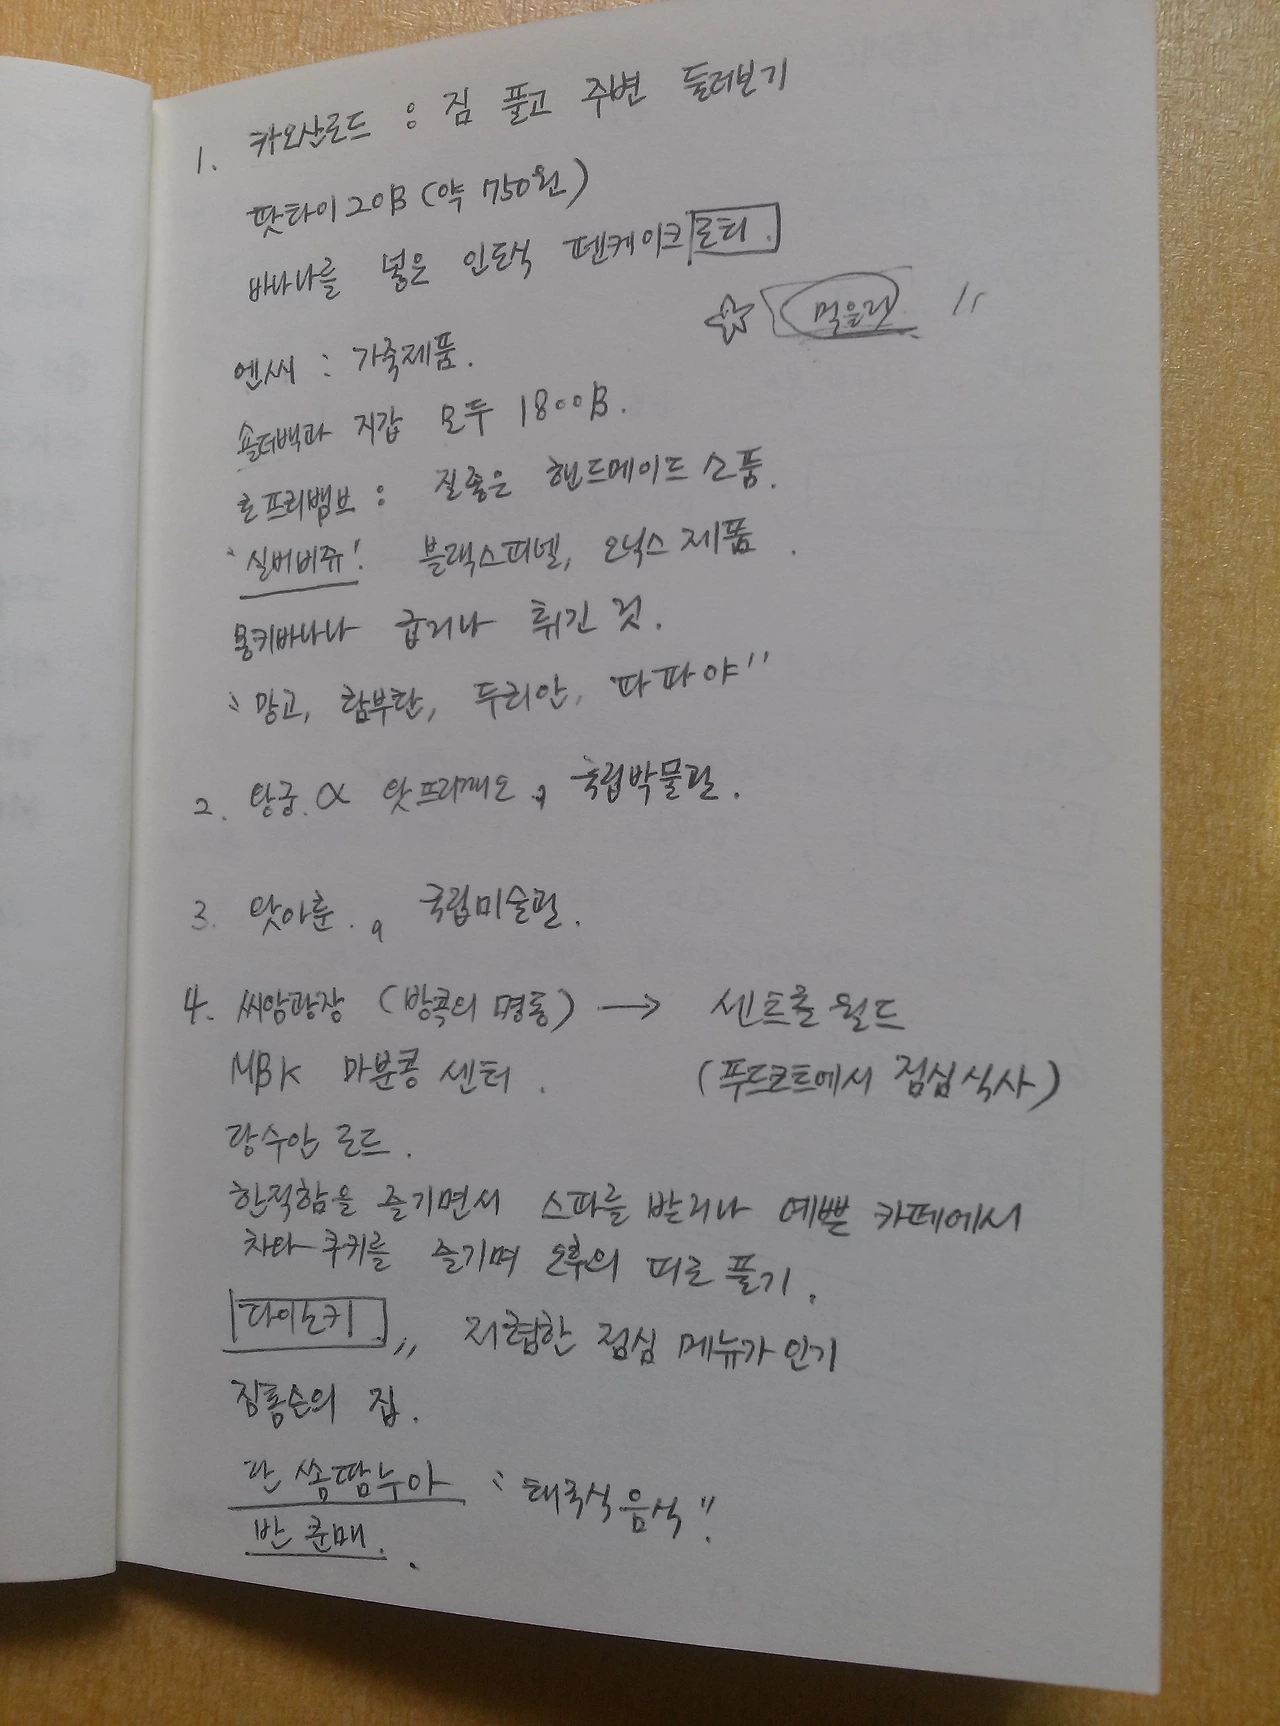 1. 카오산로드 : 짐 풀고 주변 둘러보기
팟타이 20B (약 750원)
바나나를 넣은 인도식 펜케이크 로티.
☆ 먹을것 "
엔씨 : 가죽제품.
숄더백과 지갑 모두 1800B.
로프리뱀브 : 질좋은 핸드메이드 소품.
'실버비쥬! 블랙스피넬, 오닉스 제품.
몽키바나나 굽거나 튀긴 것.
" 망고, 람부탄, 두리안, 파파야"
2. 왕궁 & 왓프라깨오, 국립박물관.
3. 왓아룬., 국립미술관.
4. 씨암광장 (방콕의 명동) → 센트럴 월드
MBK 마분콩 센터. (푸드코트에서 점심식사)
랑수안 로드.
한적함을 즐기면서 스파를 받거나 예쁜 카페에서
차와 쿠키를 즐기며 오후의 피로 풀기.
저렴한 점심 메뉴가 인기
짐톰슨의 집.
란 쏨땀누아 "태국식 음식".
반 쿤매.